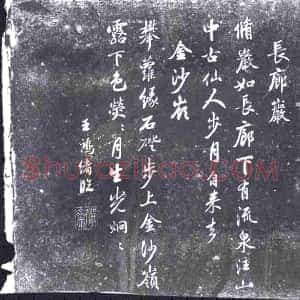 長廊巖
脩巖如長廊下有流泉注山
中古仙人步月時來去
金沙嶺
攀蘿緣石磴步上金沙嶺
露下色熒:月生光炯:
王鴻緒臨